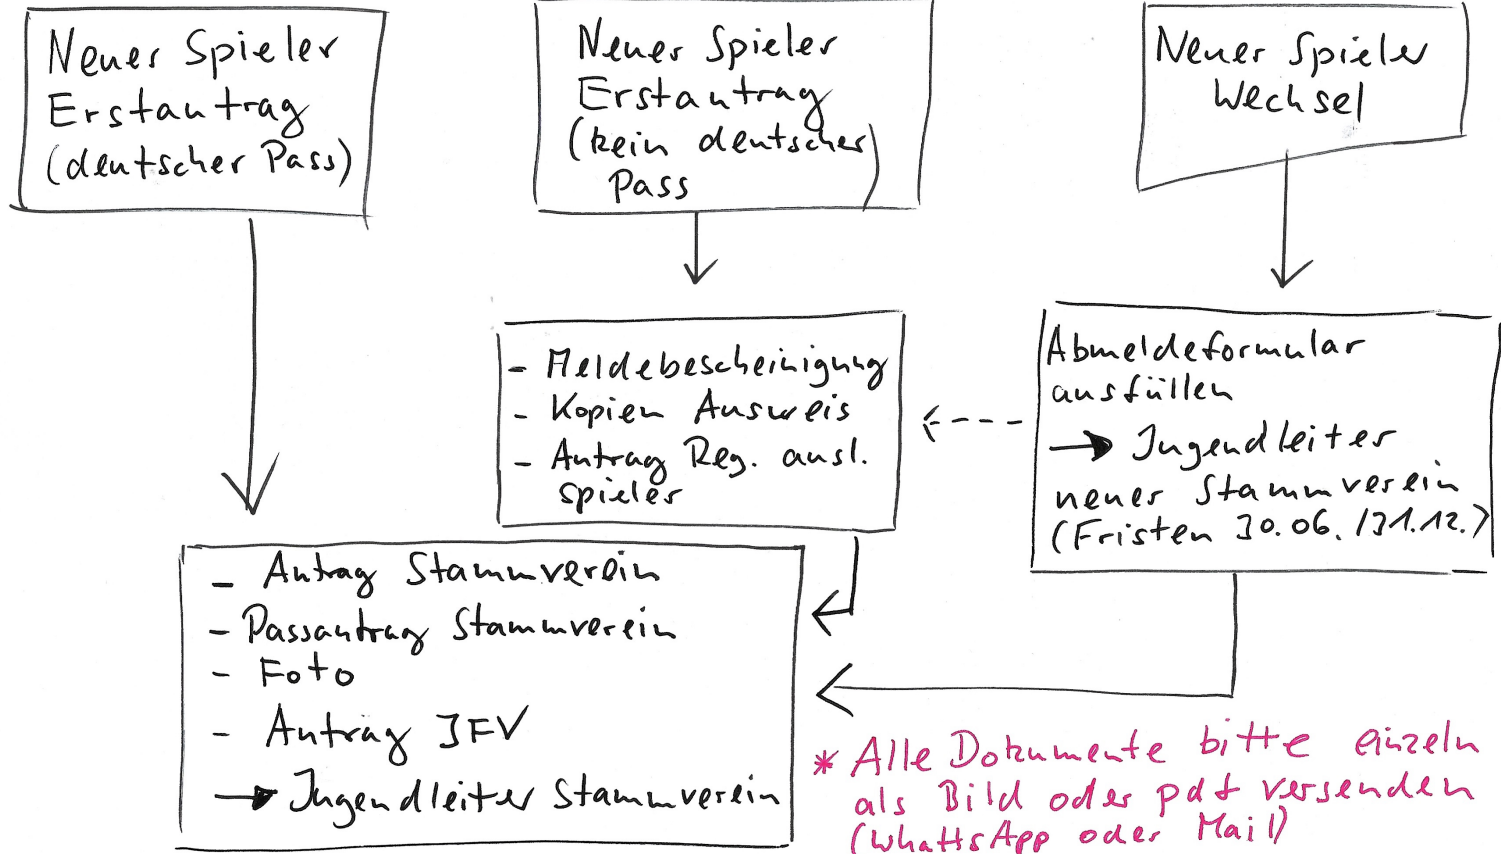 Neuer Spieler
Erstantrag
(deutscher Pass)
Neuer Spieler
Erstantrag
(kein deutscher
Pass)
Neuer Spieler
Wechsel
- Meldebescheinigung
- Kopien Ausweis
- Antrag Reg. ausl.
spieler
Abmeldeformular
ausfüllen
→ Jugendleiter
neuer Stammverein
(Fristen 30.06. /31.12.)
- Antrag Stammverein
- Passantrag Stammverein
- Foto
- Antrag JFV
→ Jugendleiter Stammverein
* Alle Dokumente bitte einzeln
als Bild oder pdf versenden
(WhattsApp oder Mail)